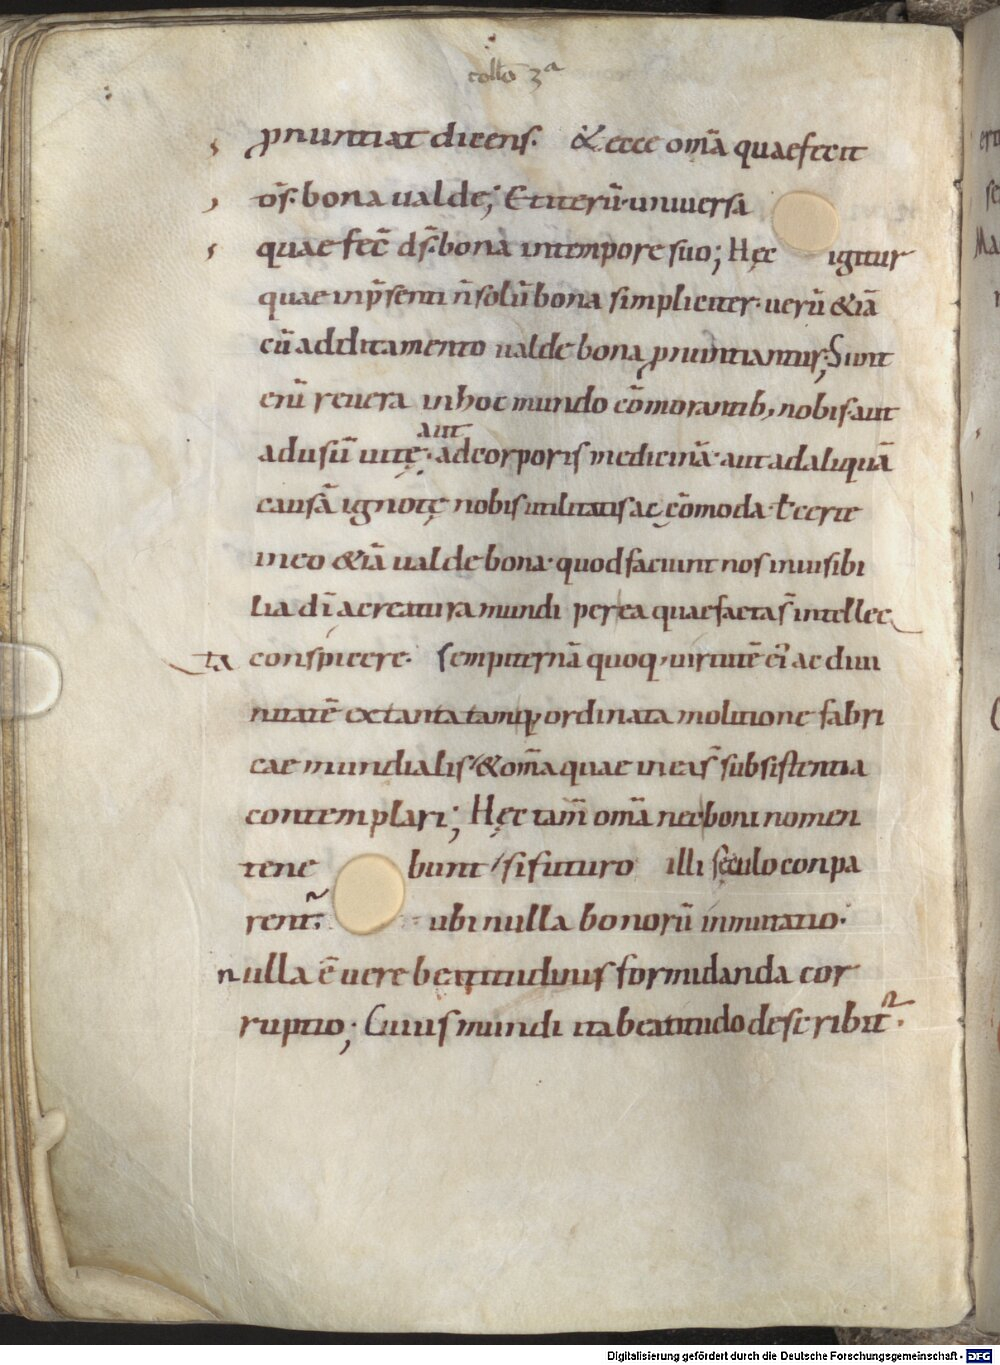 collo 3ª
ꝓnuntiat dicens. &ecce om̄a quaefecit
d̄s. bona ualde; Etiterū uniuersa
quae fec̄ d̄s. bona intempore suo; Hęc igitur
quae inp̄senti n̄solū bona simpliciter. uerū &iā
cū additamento ualde bona ꝓnuntiantur; Sunt
enī reuera inhoc mundo cōmorantib; nobis. aut
aut
adusū uitę. adcorporis medicinā. aut adaliquā
causā ignotę nobis utilitatis ac cōmoda. ł certe
ineo &iā ualde bona. quod faciunt nos inuisibi
lia dī acreatura mundi per ea quae facta s̄ intellec
ta conspicere. sempiternā quoq; uirtutē ei ac diui
nitatē extanta tamq; ordinata molitione fabri
cae mundialis / &om̄a quae ineas̄ subsistentia
contemplari; Hęc tam̄ om̄a nec boni nomen
tene bunt / sifuturo illi sęculo conpa
rent̄. ubi nulla bonorū inmutatio.
nulla ē uere beatitudinis formidanda cor
ruptio; Cuius mundi ita beatitudo describit᷑.
Digitalisierung gefördert durch die Deutsche Forschungsgemeinschaft - DFG